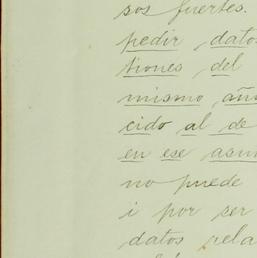 sos fuertes.
pedir datos
tiones del
mismo año
cido al de
en ese asun
no puede
i por ser
datos rela